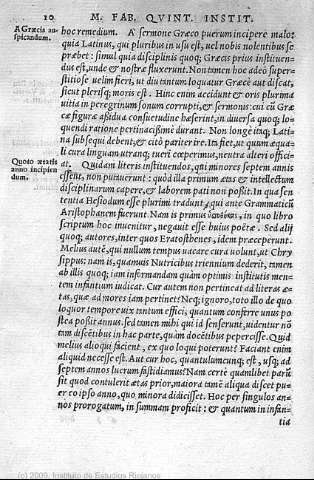 10 M. FAB. QVINT. INSTIT.
A Græcis au-
spicandum.
hoc remedium. A sermone Græco puerum incipere malo:
quia Latinus, qui pluribus in usu est, uel nobis nolentibus se
præbet: simul quia disciplinis quoq; Græcis prius instituen-
dus est, unde & nostræ fluxerunt. Non tamen hoc adeo super-
stitiose uelim fieri, ut diu tantum loquatur Græce aut discat,
sicut plerisq; moris est. Hinc enim accidunt & oris plurima
uitia in peregrinum sonum corrupti, & sermonis: cui cũ Græ
cæ figuræ assidua consuetudine hæserint, in diuersa quoq; lo-
quendi ratione pertinacissimè durant. Non longè itaq; Lati-
na subsequi debent, & citò pariter ire. Ita fiet, ut quum æqua-
li cura linguam utranq; tueri cœperimus, neutra alteri offici-
Quoto ætatis
anno incipien
dum.
at. Quidam literis instituendos, qui minores septem annis
essent, non putuerunt: quòd illa primum ætas & intellectum
disciplinarum capere, & laborem pati non possit. In qua sen
tentia Hesiodum esse plurimi tradunt, qui ante Grammaticũ
Aristophanem fuerunt. Nam is primus ὑποθήκας, in quo libro
scriptum hoc inuenitur, negauit esse huius poëtæ. Sed alij
quoq; autores, inter quos Eratosthenes, idem præceperunt.
Melius autẽ, qui nullum tempus uacare cura uolunt, ut Chry
sippus: nam is, quamuis Nutricibus triennium dederit, tamen
ab illis quoq; iam informandam quàm optimis institutis men-
tem infantium iudicat. Cur autem non pertineat ad literas æ-
tas, quæ ad mores iam pertinet? Neq; ignoro, toto illo de quo
loquor tempore uix tantum effici, quantum conferre unus po
stea possit annus. sed tamen mihi qui id senserunt, uidentur nõ
tàm discẽtibus in hac parte, quàm docẽtibus pepercisse. Quid
melius alioqui facient, ex quo loqui poterunt? Faciant enim
aliquid necesse est. Aut cur hoc, quantulumcunq; est, usq; ad
septem annos lucrum fastidiamus? Nam certè quamlibet parũ
sit quod contulerit ætas prior, maiora tamẽ aliqua discet pu-
er eo ipso anno, quo minora didicisset. Hoc per singulos an-
nos prorogatum, in summam proficit: & quantum in infan-
tia
(c) 2009. Instituto de Estudios Riojanos